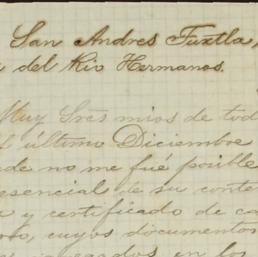 San Andres Tuxtla,
del Rio Hermanos.
Muy Sres mios de tod
último Diciembre
de no me fué posible
esencial de su conte
y certificado de ca
cuyos documentos
en los